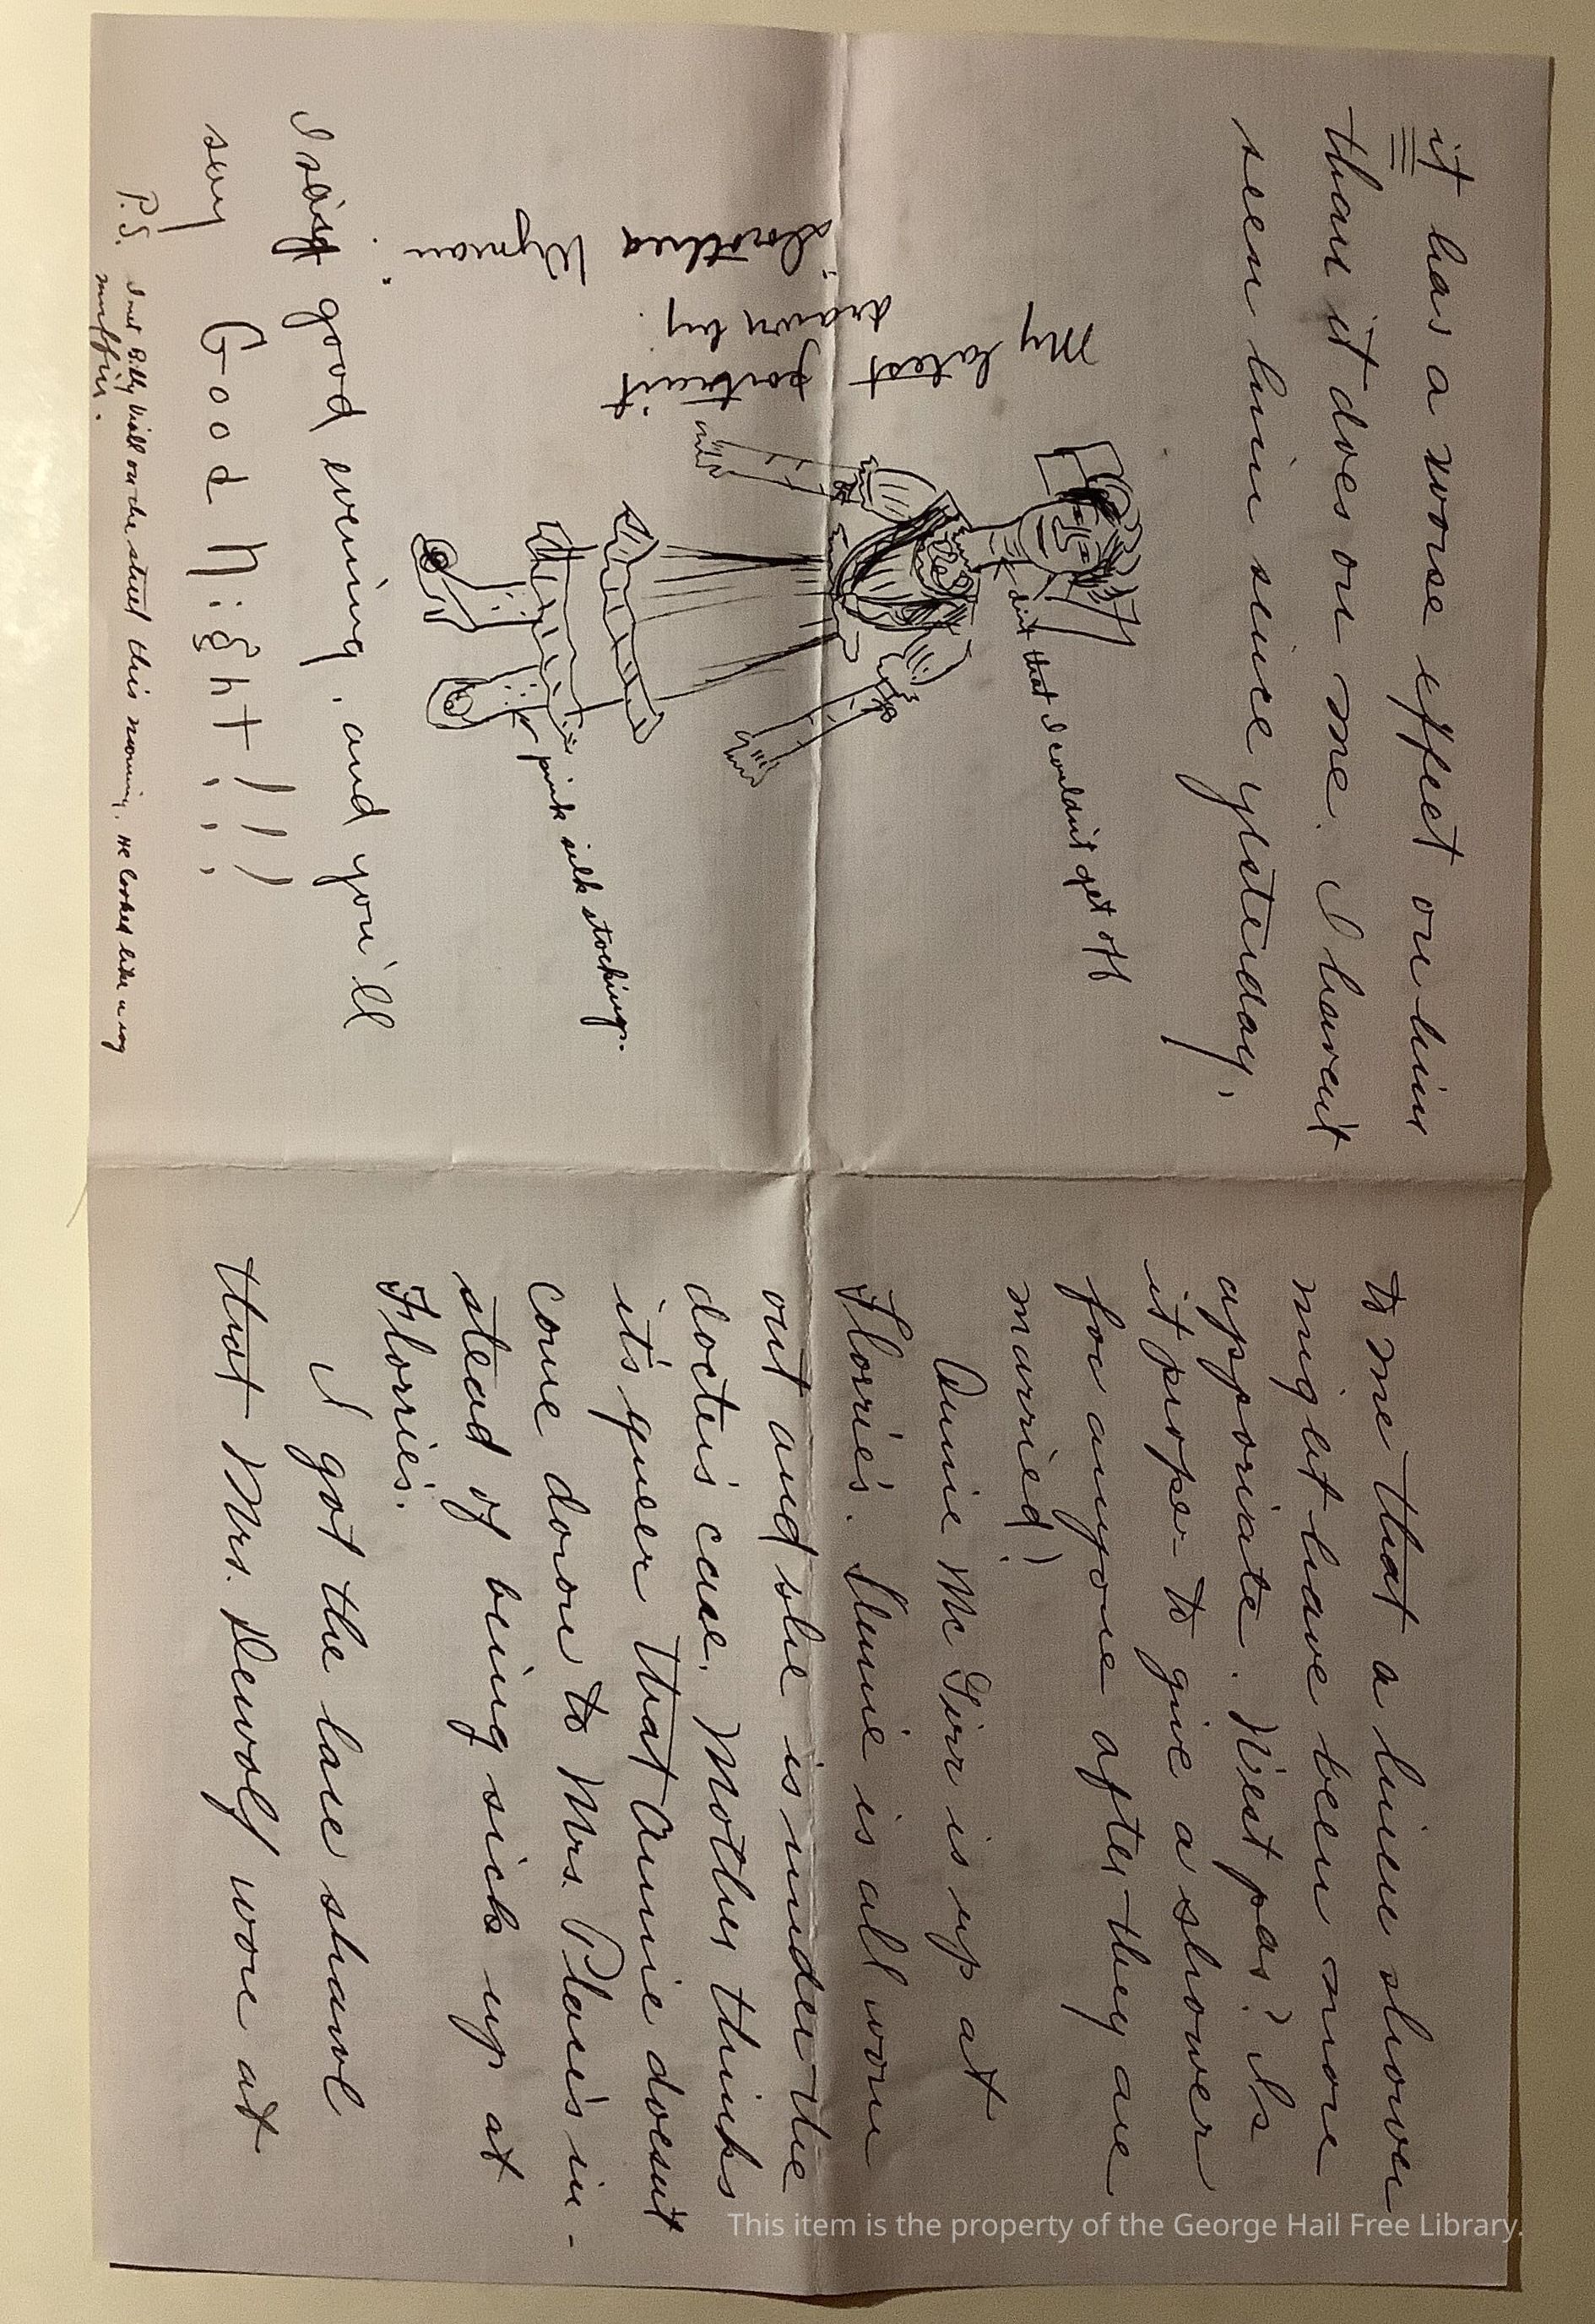 it has a worse effect on him
than it does on me. I haven't
seen him since yesterday.
My latest portrait
drawn by.
"Dorothea Wyman"
dirt that I couldn't get off
pink silk stockings.
I say good evening, and you'll
say Good Night!!!
P.S. I met Billy Viall on the street this morning. He looked like a rag
muffin.
to me that a linen shower
might have been more
apporiate. N'est pas? Is
it proper to give a shower
for anyone after they are
married!
Annie McGirr is up at
Florrie's. Annie is all worn
out and she is under the
docter's care. Mother thinks
it's queer that Annie doesn't
come down to Mrs. Place's in-
stead of being sick up at
Florries.
I got the lace shawl
that Mrs. Dewolf wore at
This item is the property of the George Hail Free Library.